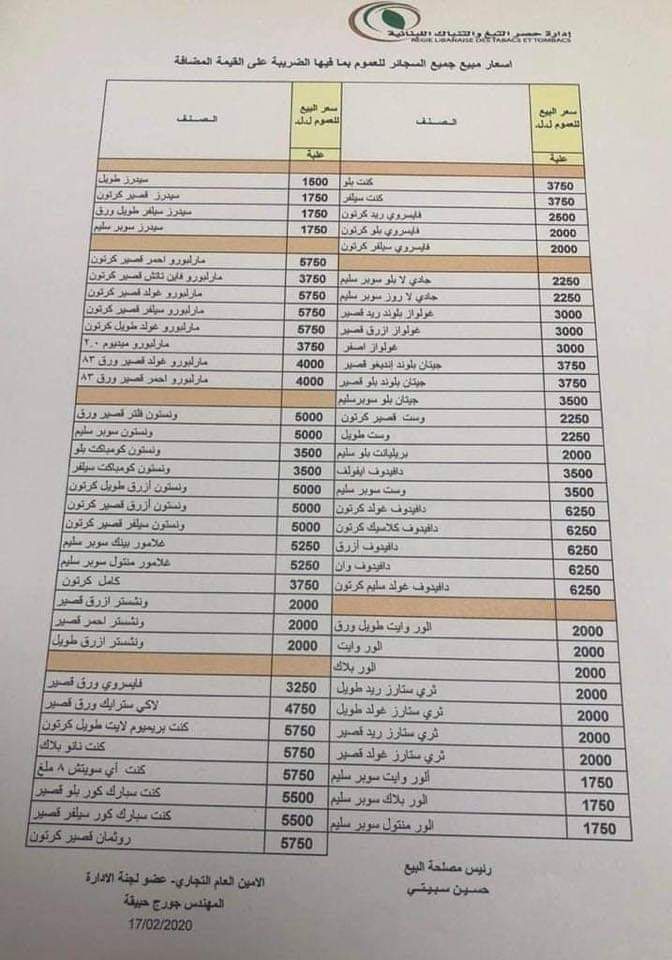 إدارة حصر التبغ والتنباك اللبنانية
REGIE LIBANAISE DES TABACS ET TOMBACS
اسعار مبيع جميع السجائر للعموم بما فيها الضريبة على القيمة المضافة
سعر البيع للعموم ل.ل. الصنف سعر البيع للعموم ل.ل. الصنف
علبة علبة
3750 كنت بلو 1500 سيدرز طويل
3750 كنت سيلفر 1750 سيدرز قصير كرتون
2500 فايسروي ريد كرتون 1750 سيدرز سيلفر طويل ورق
2000 فايسروي بلو كرتون 1750 سيدرز سوبر سليم
2000 فايسروي سيلفر كرتون
5750 مارلبورو احمر قصير كرتون
2250 جادي لا بلو سوبر سليم 3750 مارلبورو فاين تاتش قصير كرتون
2250 جادي لا روز سوبر سليم 5750 مارلبورو غولد قصير كرتون
3000 غولواز بلوند ريد قصير 5750 مارلبورو سيلفر قصير كرتون
3000 غولواز ازرق قصير 5750 مارلبورو غولد طويل كرتون
3000 غولواز اصفر 3750 مارلبورو ميديوم ٢.٠
3750 جيتان بلوند إنديغو قصير 4000 مارلبورو غولد قصير ورق ٨٣
3750 جيتان بلوند بلو قصير 4000 مارلبورو احمر قصير ورق ٨٣
3500 جيتان بلو سوبرسليم
2250 وست قصير كرتون 5000 ونستون فلتر قصير ورق
2250 وست طويل 5000 ونستون سوبر سليم
2000 بريليانت بلو سليم 3500 ونستون كومباكت بلو
3500 دافيدوف ايفولف 3500 ونستون كومباكت سيلفر
3500 وست سوبر سليم 5000 ونستون أزرق طويل كرتون
6250 دافيدوف غولد كرتون 5000 ونستون أزرق قصير كرتون
6250 دافيدوف كلاسيك كرتون 5000 ونستون سيلفر قصير كرتون
6250 دافيدوف أزرق 5250 غلامور بينك سوبر سليم
6250 دافيدوف وان 5250 غلامور منتول سوبر سليم
6250 دافيدوف غولد سليم كرتون 3750 كامل كرتون
2000 ونشستر ازرق قصير
2000 الور وايت طويل ورق 2000 ونشستر احمر قصير
2000 الور وايت 2000 ونشستر ازرق طويل
2000 الور بلاك
2000 ثري ستارز ريد طويل 3250 فايسروي ورق قصير
2000 ثري ستارز غولد طويل 4750 لاكي سترايك ورق قصير
2000 ثري ستارز ريد قصير 5750 كنت بريميوم لايت طويل كرتون
2000 ثري ستارز غولد قصير 5750 كنت نانو بلاك
1750 ألور وايت سوبر سليم 5750 كنت أي سويتش ٨ ملغ
1750 الور بلاك سوبر سليم 5500 كنت سبارك كور بلو قصير
1750 الور منتول سوبر سليم 5500 كنت سبارك كور سيلفر قصير
5750 روثمان قصير كرتون
رئيس مصلحة البيع
حسين سبيتي
الامين العام التجاري- عضو لجنة الادارة
المهندس جورج حبيقة
17/02/2020